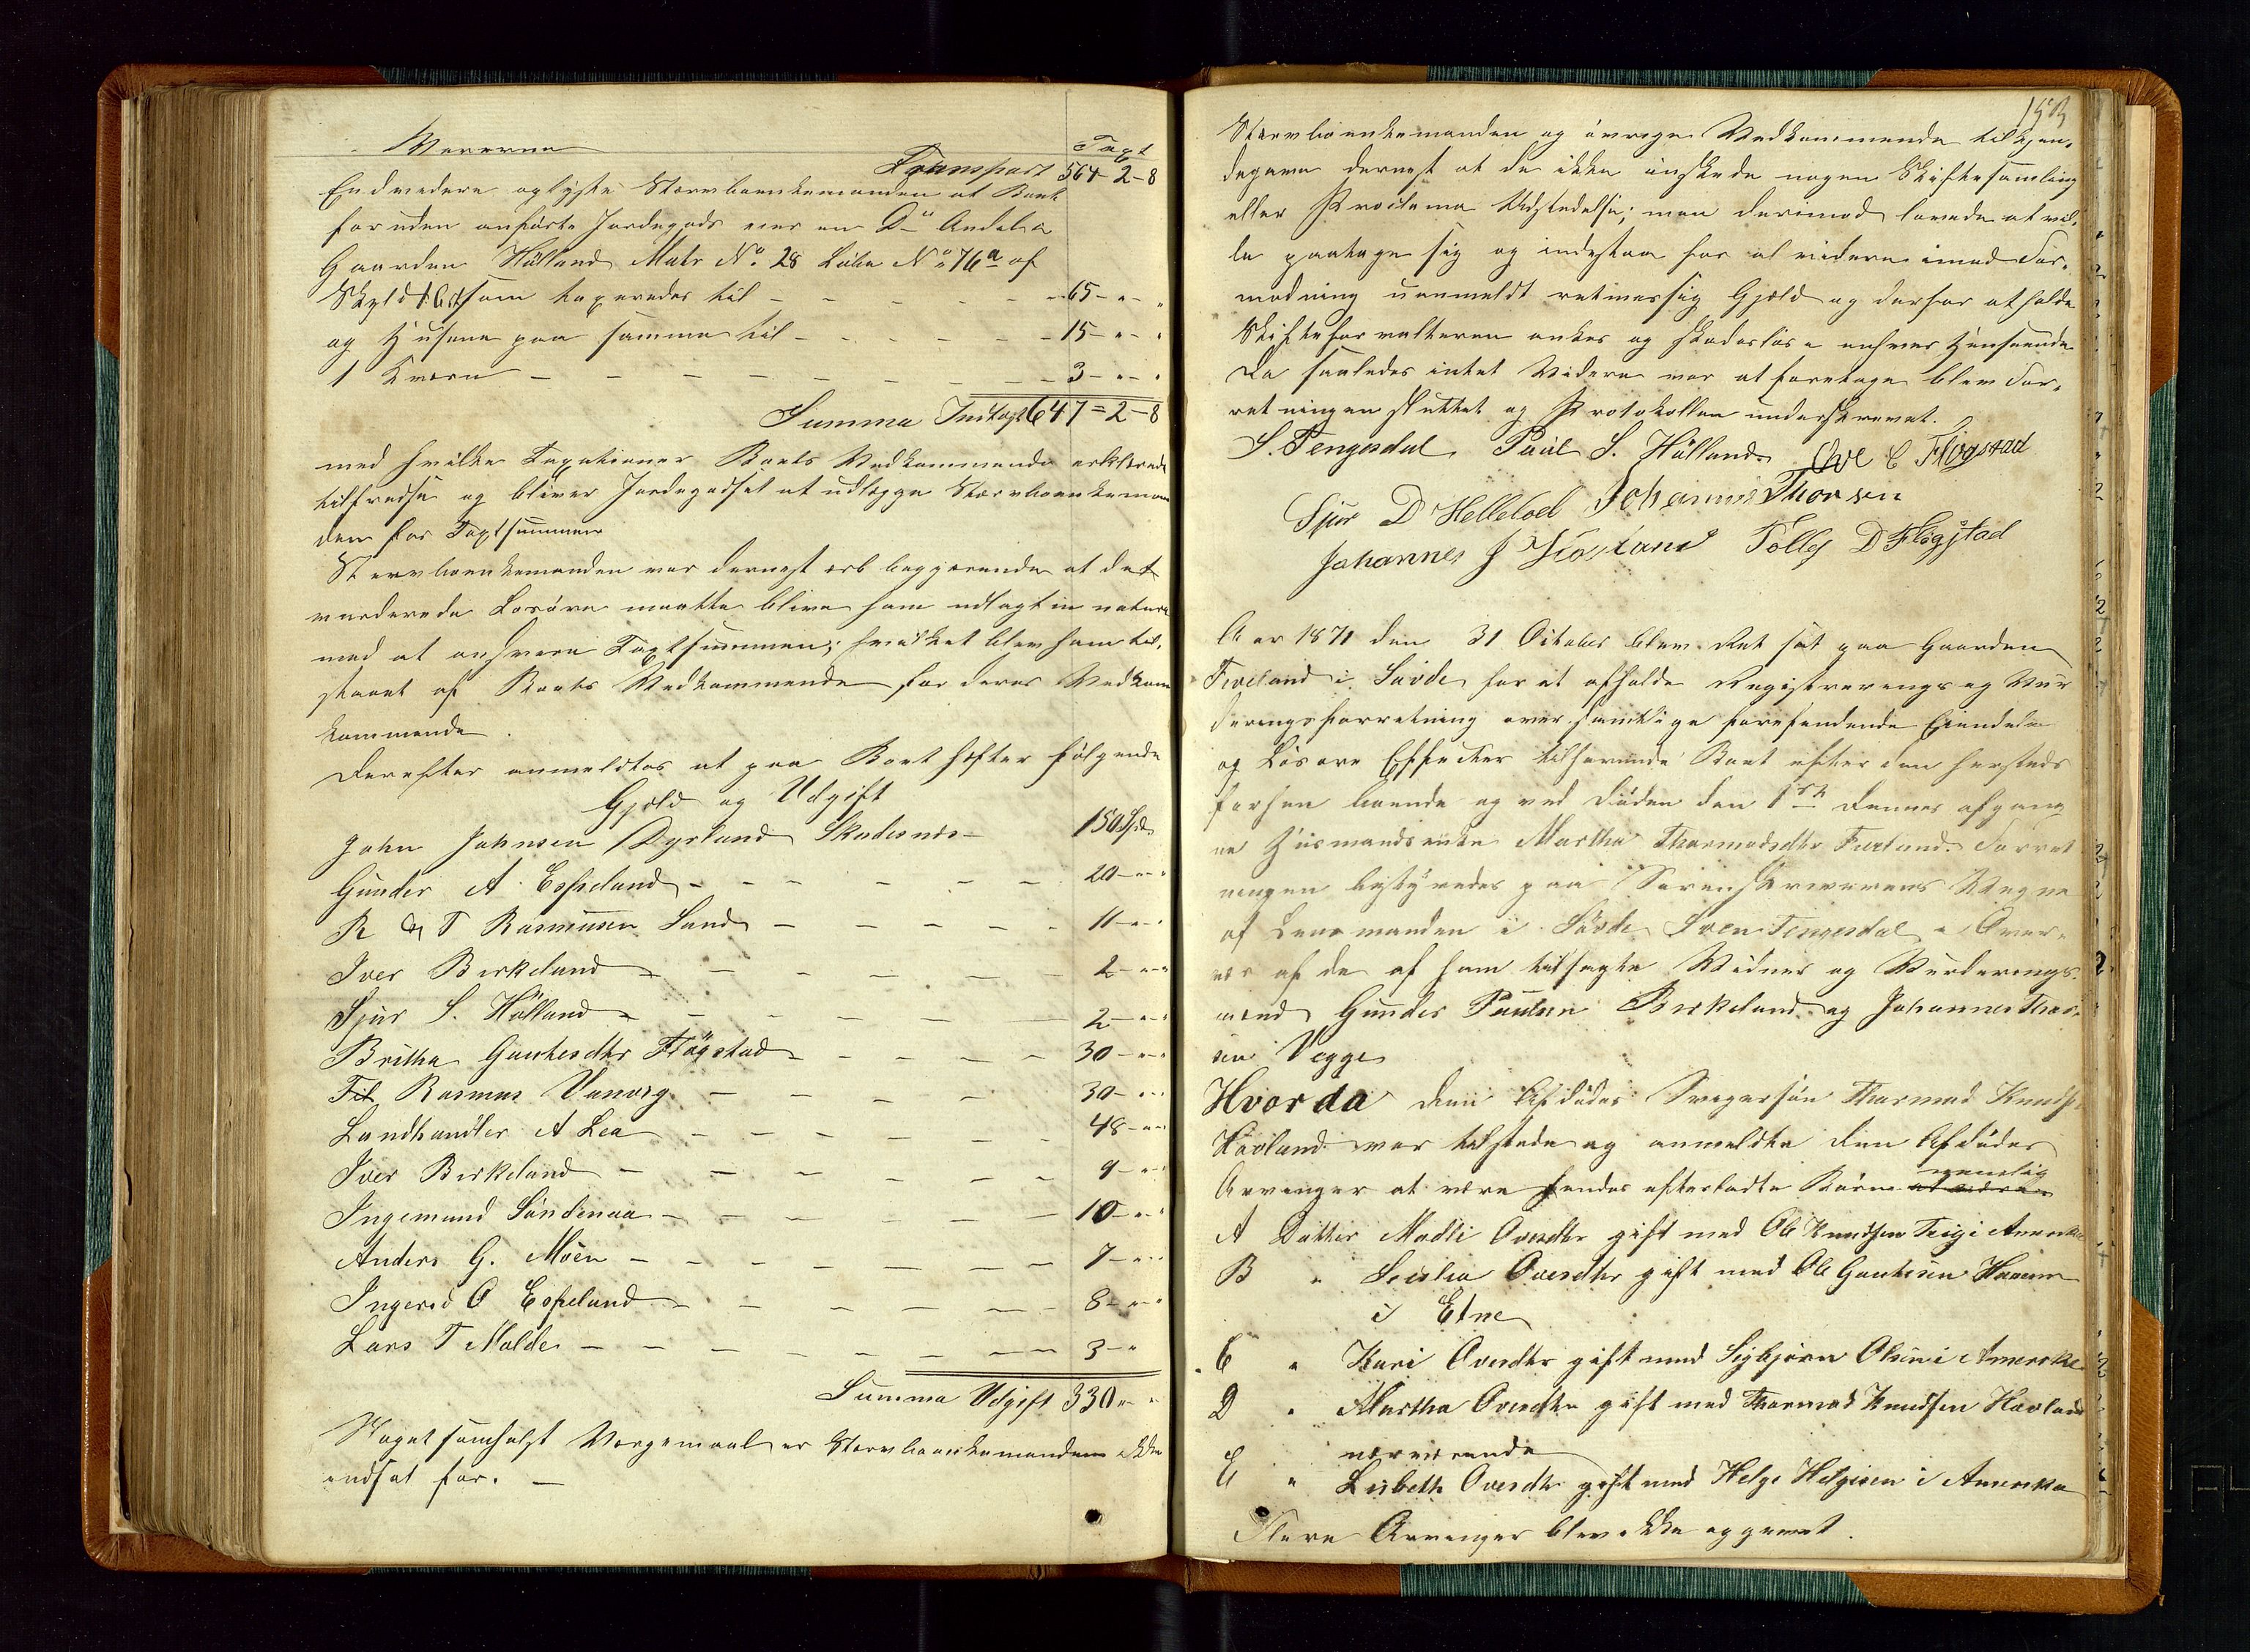 Varerne Taxt
Transport 564-2-8
Endvidere oplyste Stervboenkemanden at Boet
foruden anførte Jordegods eier en Do Andel i
Gaarden Hålland Matr No. 28 Løbe No 76a af
Skyld som taxeredes til - - - 65- " - "
og Husene paa samme til - - - 15- " - "
1 Kværn - - - 3- " - "
Summa Indtægt 647=2-8
med hvilke Taxationer Boets Vedkommende erklærede
tilfredse og bliver Jordegodset at udlægge Stervboenkeman
den for Taxtsummen
Stervboenkemanden var dernest begjærende at det
vurderede Løsøre maatte blive ham udlagt in natura
med at ansvare Taxtsummen; hvilket blev ham til-
staaet af Boets Vedkommende for deres Vedkom
kommende.
Derefter anmeldtes at paa Boet hæfter følgende
Gjæld og Udgift
John Johnsen Dyrland Skudesnes - 150 Spd
Gunder A. Espeland - - - 20 - " - "
R & T Rasmusen Sand - - - 11 - " - "
Iver Birkeland - - - 2 - " - "
Sjur S. Hålland - - - 2 - " - "
Britha Gautesdtr Fløgstad - - - 30 - " - "
Til Rasmus Vanvig - - - 30 - " - "
Landhandler A Lea - - - 48 - " - "
Iver Birkeland - - - 9 - " - "
Ingemund Søndenaa - - - 10 - " - "
Anders G. Moen - - - 7 - " - "
Ingerid O Espeland - - - 8 - " - "
Lars T Molde - - - 3 - "
Summa Udgift 330 " - "
Noget somhelst Værgemaal er Stervboenkemanden ikke
indsat for. -
153
Stervboenkemanden og øvrige Vedkommende tilkjen-
degave dernest at de ikke ønskede nogen Skiftesamling
eller Proclama Udstedelse; men derimod lovede at vil-
le paatage sig og indestaa for al videre imod For-
modning uanmeldt retmæssig Gjæld og derfor at holde
Skifteforvalteren ankes og skadesløs i enhver Henseende
Da saaledes intet Videre var at foretage blev For-
retningen sluttet og Protokollen underskrevet.
S. Tengesdal Paul S. Hålland Ove C Fløgstad
Sjur D Helleloel Johannes Thorsen
Johannes J Tolley D Fløgstad
Aar 1871 den 31 October blev Ret sat paa Gaarden
Fireland i Søvde for at afholde Registrerings og Vur
deringsforretning over samtlige forefindende Eiendele
og Løsøre Effecter tilhørende Boet efter den hersteds
forhen boende og ved Døden den 1ste dennes afgang
ne Huusmandsenke Martha Thormodsdtr Fureland. Forret
ningen bestyredes paa Sorenskriverens Vegne
af Lensmanden i Søvde Sven Tengesdal i Over-
vær af de af ham tilsagte Vidner og Vurderings-
mænd Gunder Paulsen Birkeland og Johannes Thor-
sen Vegge
Hvorda den Afdødes Svigersøn Thormod Knuds
Havland var tilstede og anmeldte den Afdødes
Arvinger at være hendes efterladte Børn nemlig
A Datter Madli Ovesdtr gift med Ole Knudsen Teig i Amerika
B " Sisilia Ovesdtr gift med Ole Gautesen
i Etne
C " Kari Ovesdtr gift med Sigbjørn Olsen i Amerika
D " Martha Ovesdtr gift med Thormod Knudsen Havland
nærværende
E " Lisbeth Ovesdtr gift med Helge Helgesen i Amerika
Flere Arvinger blev ikke opgivet.